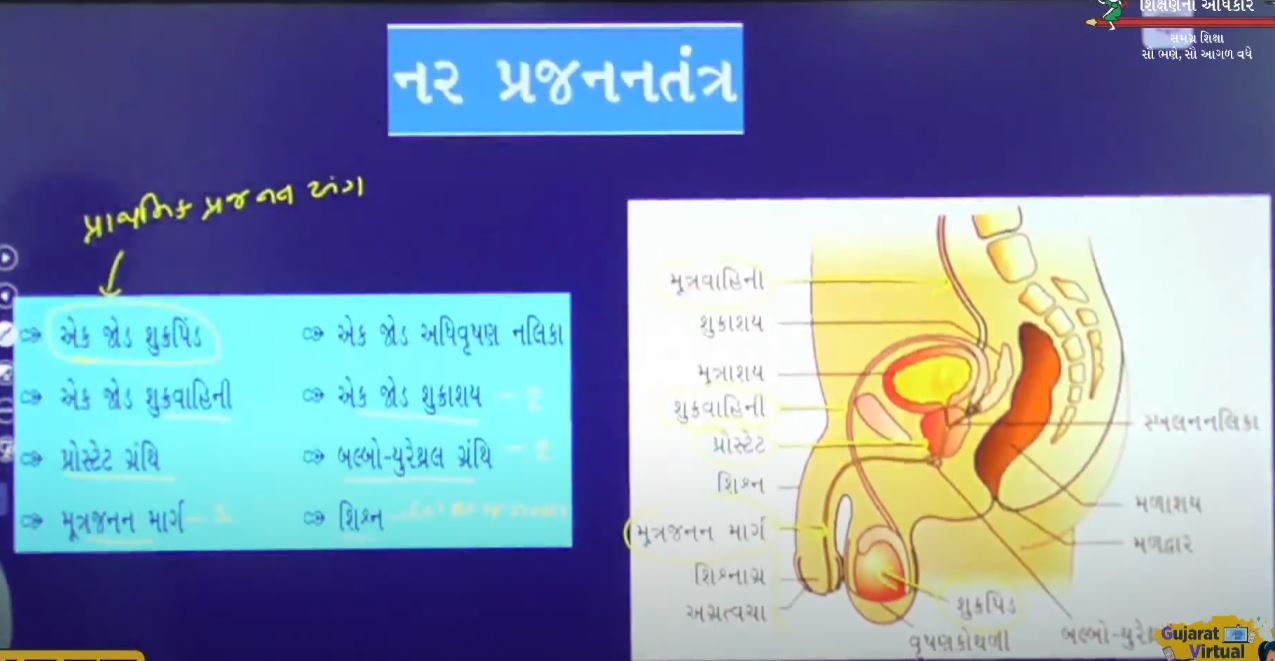 શિક્ષણનો અધિકાર
સમગ્ર શિક્ષા
સૌ ભણે, સૌ આગળ વધે
નર પ્રજનનતંત્ર
પ્રાથમિક પ્રજનન અંગ
એક જોડ શુક્રપિંડ
એક જોડ અધિવૃષણ નલિકા
એક જોડ શુક્રવાહિની
એક જોડ શુક્રાશય - 2
પ્રોસ્ટેટ ગ્રંથિ
બલ્બો-યુરેથ્રલ ગ્રંથિ - 2
મૂત્રજનન માર્ગ - 1
શિશ્ન
મૂત્રવાહિની
શુક્રાશય
મૂત્રાશય
શુક્રવાહિની
પ્રોસ્ટેટ
શિશ્ન
મૂત્રજનન માર્ગ
શિશ્નાગ્ર
અગ્રત્વચા
સ્ખલનનલિકા
મળાશય
મળદ્વાર
શુક્રપિંડ
વૃષણકોથળી
બલ્બો-યુરે
Gujarat
Virtual